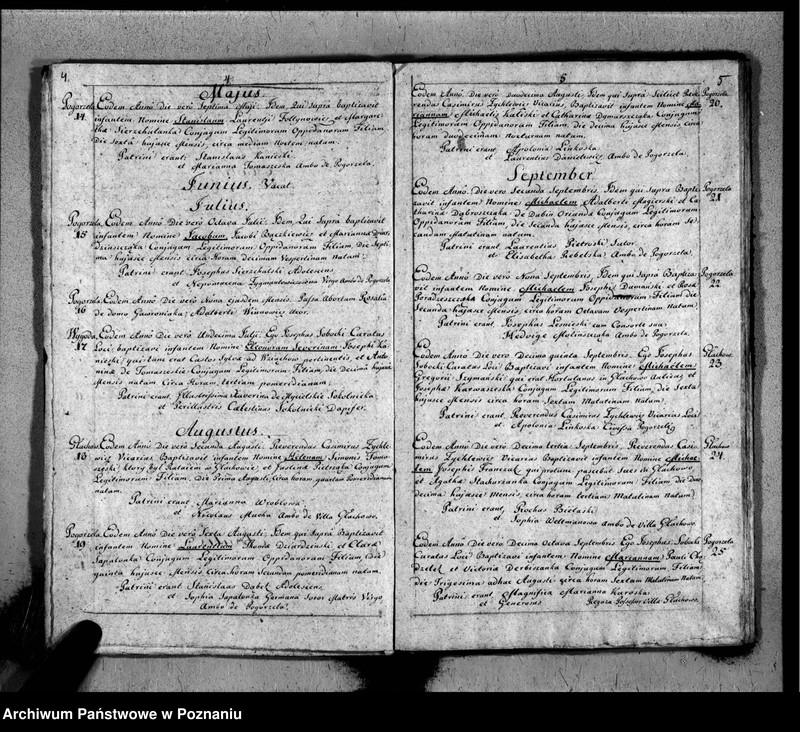 4. 4
Majus.
Pogorzela 14. Eodem Anno Die vero Septima Maji. Idem Qui supra baptizavit
infantem Nomine Stanislaum Laurentii et Margare-
tha Conjugum Legitimorum Oppidanorum Filium
Die Sexta hujusce Mensis, circa mediam Noctem natum.
Patrini erant Stanislaus Kaniecki
et Marianna Tomaszeska Ambo de Pogorzela.
Junius. Vacat.
Julius.
Pogorzela 15 Eodem Anno Die vero Octava Julii. Idem Qui supra baptizavit
infantem Nomine Jacobum Jacobi et Marianna
Conjugum Legitimorum Oppidanorum Filium, Die Septi-
ma hujusce Mensis circa Horam decimam Vespertinam Natum.
Patrini erant Josephus Sierzchulski Adolescens
et Nepomucena Virgo Ambo de Pogorzela
Pogorzela 16 Eodem Anno Die vero Nona ejusdem Mensis. Passa Abortum Rosalia
de domo Gawroniaka Adalberti Uxor.
17 Eodem Anno Die vero Undecima Julii. Ego Josephus Sobocki Curatus
Loci baptizavi infantem Nomine Eleonoram Severinam Josephi Ka-
mieski, qui tum erat Custos Sylvæ ad pertinentis, et Anto-
ninæ de Tomaszeskie Conjugum Legitimorum Filiam, die decima hujusce
Mensis natam circa Horam tertiam pomeridianam.
Patrini erant Illustrissima Xaverina de Mycielskie Sokolnicka
et Perillustris Celestinus Sokolnicki Dapifer.
Augustus.
Gluchowo 18 Eodem Anno Die vero Secunda Augusti. Reverendus Casimirus Zychle-
wicz Vicarius Baptizavit infantem Nomine Helenam Simonis Toma-
szeski ktory byl Ratajem w Gluchowie et Justina Pietrzaka Conjugum
Legitimorum Filiam. Die Prima Augusti, circa horam quartam Pomeridianam
natam.
Patrini erant Marianna Wroblowa
et Nicolaus Mucha Ambo de Villa Gluchowo.
Pogorzela 19 Eodem Anno Die vero Sexta Augusti. Idem qui supra Baptizavit
infantem Nomine Laurentium Thoma Dziurdzenski et Clara
Sapalonka Conjugum Legitimorum Oppidanorum Filium, Die
quinta hujusce Mensis, circa horam Secundam pomeridianam natum.
Patrini erant Stanislaus Dabel Adolescens,
et Sophia Sapalonka Germana Soror Matris Virgo
Ambo de Pogorzela.
5 5
Eodem Anno Die vero duodecima Augusti. Idem qui Supra Scilicet Reve- Pogorzela
rendus Casimirus Zychlewicz Vicarius, Baptizavit infantem Nomine Ma- 20.
riannam Michaelis Kaliski et Catharina Conjugum
Legitimorum Oppidanorum Filiam, die decima hujusce Mensis circa
horam duodecimam Nocturnam natam.
Patrini erant Apolonia Linkoska
et Laurentius Danielewicz Ambo de Pogorzela.
September.
Eodem Anno. Die vero Secunda Septembris. Idem qui Supra Bapti- Pogorzela
zavit infantem Nomine Michaelem Adalberti Magierski et Ca- 21
tharina Dabroszczaka de Dubin Oriunda Conjugum Legitimorum
Oppidanorum Filium, die Secunda hujusce Mensis, circa horam Se-
cundam Matutinam natum.
Patrini erant Laurentius Pietroski Sutor
et Elisabetha Rebelska Ambo de Pogorzela.
Eodem Anno. Die vero Nona Septembris, Idem qui Supra Baptiza- Pogorzela
vit infantem Nomine Michaelem Josephi Dumanski et Rosa 22
Conjugum Legitimorum Oppidanorum Filium die
Secunda hujusce Mensis, circa horam Octavam Vespertinam Natum.
Patrini erant Josephus Lesnieski cum Consorte sua
Hedvige Ambo de Pogorzela.
Eodem Anno Die vero Decima quinta Septembris. Ego Josephus Gluchowo
Sobocki Curatus Loci Baptizavi infantem Nomine Michaelem 23
Gregorii Szymanski qui erat Hortulanus in Gluchowo Aulicus et
Josepha Conjugum Legitimorum Filium, die Sexta
hujusce Mensis circa horam Sextam Matutinam Natum.
Patrini erant Reverendus Casimirus Zychlewicz Vicarius Loci
et Apolonia Linkoska
Eodem Anno Die vero Decima tertia Septembris, Reverendus Casi- Gluchowo
mirus Zychlewicz Vicarius Baptizavit infantem Nomine Micha- 24.
elem Josephi qui protunc pascebat Sues in Gluchowo,
et Agatha Conjugum Legitimorum Filium, die duo-
decima hujusce Mensis, circa horam tertiam Matutinam Natum.
Patrini erant Rochus Bielaski
et Sophia Weltmanowa ambo de Villa Gluchowo.
Eodem Anno Die vero Decima Octava Septembris Ego Josephus Sobocki Pogorzela
Curatus Loci Baptizavi infantem Nomine Mariannam Pauli 25
et Victoria Derbiszanka Conjugum Legitimorum Filiam
die Trigesima adhuc Augusti circa horam Sextam Matutinam Natam.
Patrini erant Magnifica Marianna Kuroska
et Generosus Possessor Villæ Gluchowo.
Archiwum Państwowe w Poznaniu